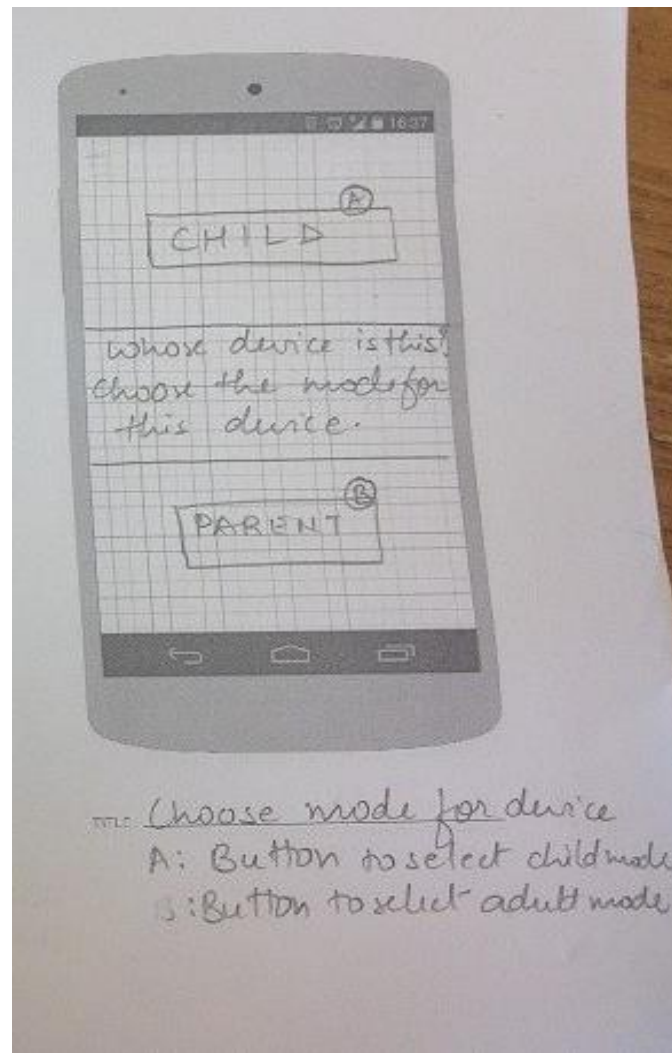 16:37
A
CHILD
whose device is this?
choose the mode for
this device.
B
PARENT
TITLE: Choose mode for device
A: Button to select child mode
B: Button to select adult mode